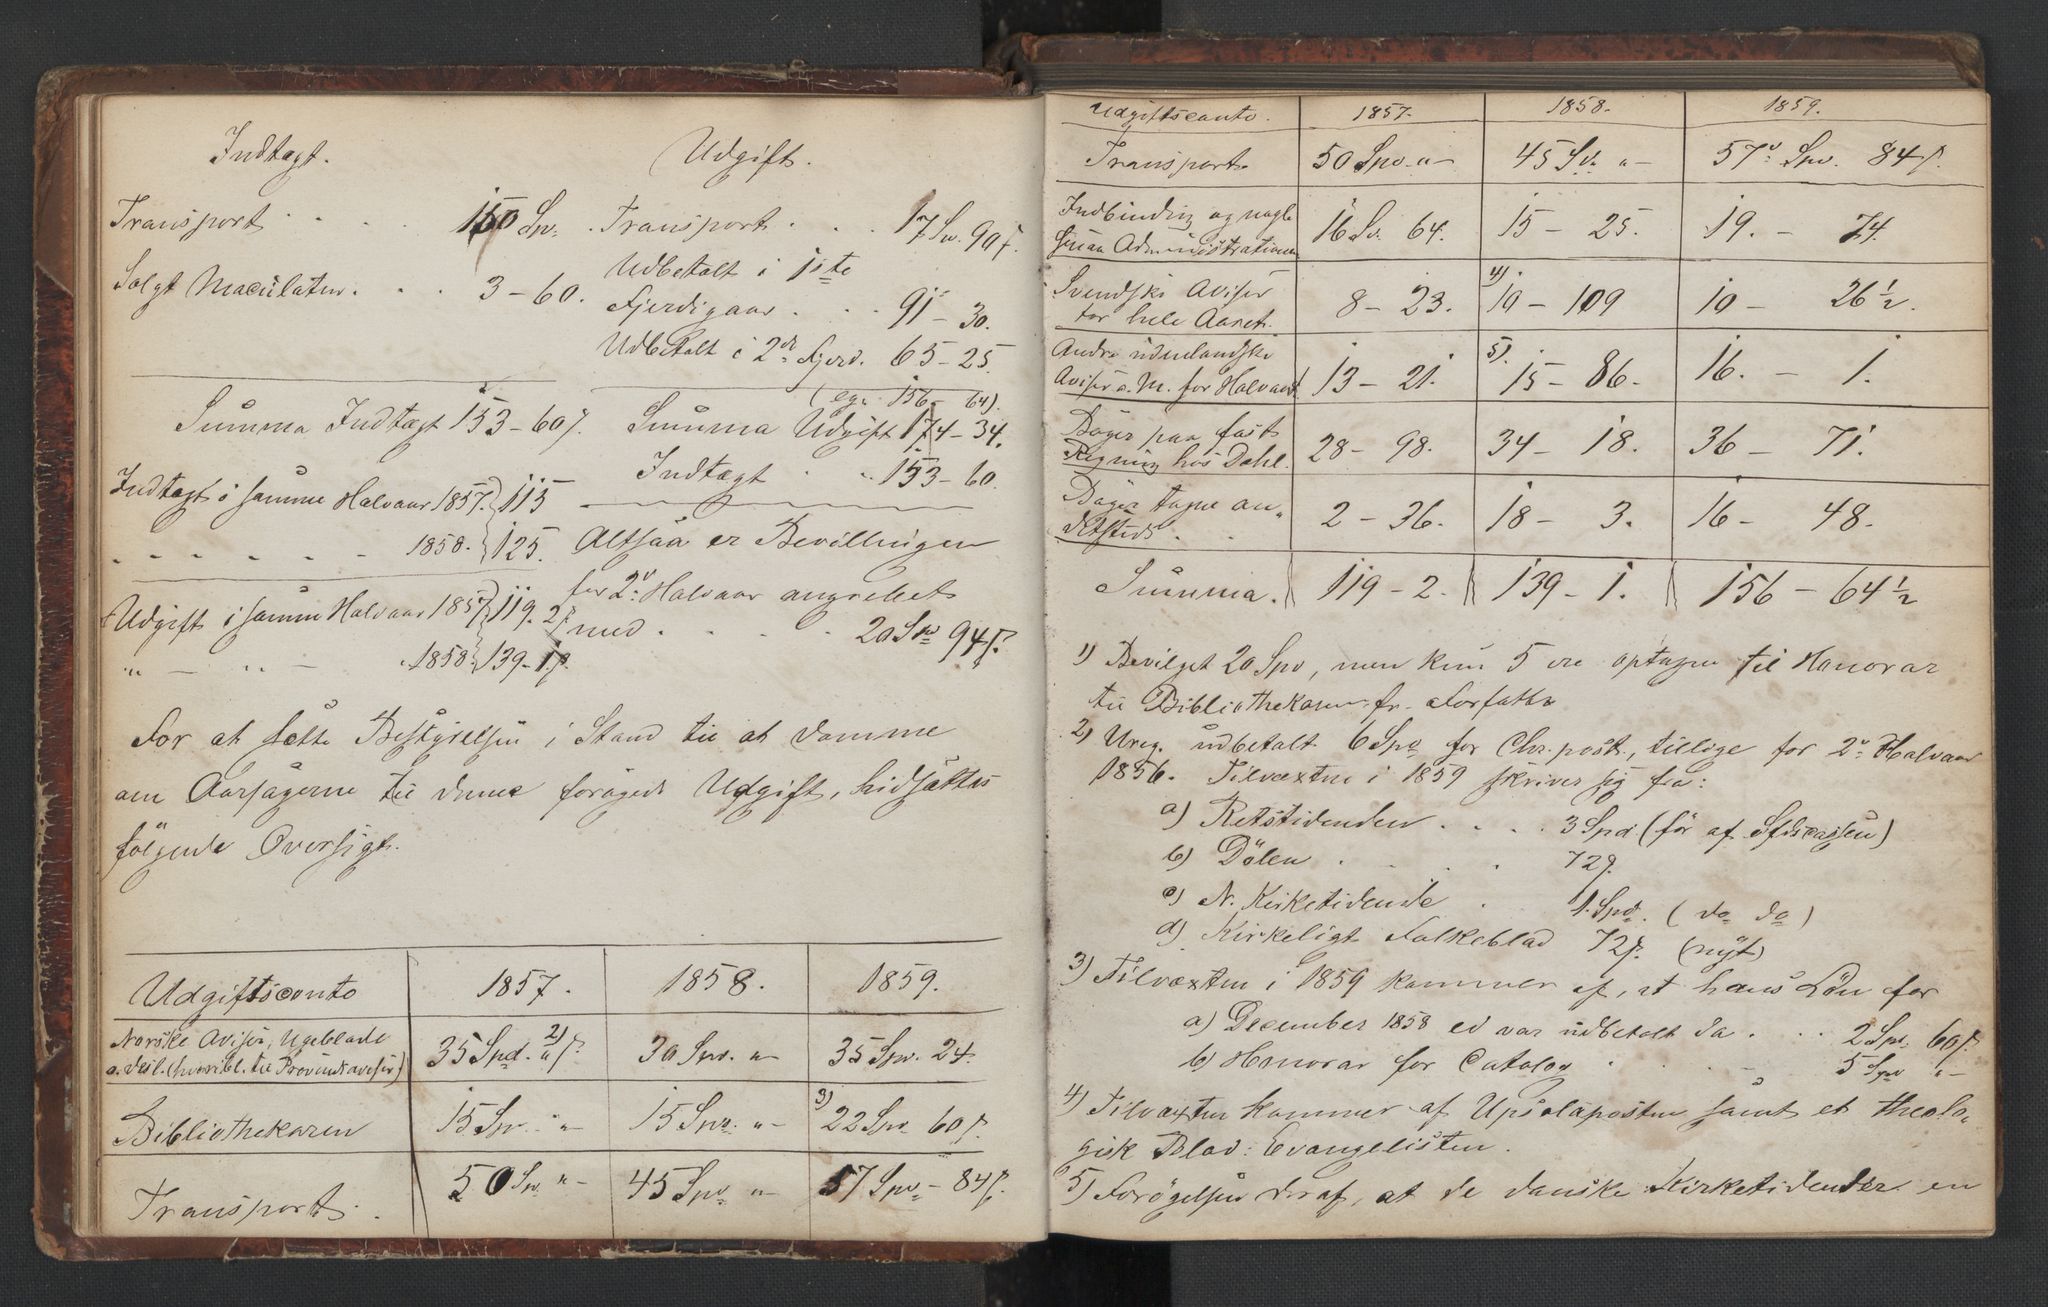 Indtægt.
Transport . . . . 150 Spd.
Solgt Maculatur . . . 3 - 60.
Summa Indtægt 153 - 60 ß.
Indtægt i samme Halvaar 1857. 115
" - - - - - 1858. 125.
Udgift i samme Halvaar 1857. 119. 2 ß
" - " - " 1858. 139 - 1 ß.
Udgift.
Transport . . . 17 Spd. 90 ß.
Udbetalt i 1ste
Fjerdigaar . . . 91 - 30.
Udbetalt i 2det Fjerd. 65 - 25.
(eg. 156 - 64).
Summa Udgift 174 - 34.
Indtægt . . . 153 - 60.
Altsaa er Bevillingen
for 2. Halvaar angrebet
med . . . . 20 Spd 94 ß.
For at sætte Bestyrelsen i Stand til at dømme
om Aarsagerne til denne forøgede Udgift, hidsættes
følgende Oversigt.
Udgiftsconto 1857. 1858. 1859.
Norske Aviser, Ugeblade
o. desl. (hvoribl. til Provindsaviser) 35 Spd. " ß. 2) 30 Spd. " - 35 Spd. 24.
Bibliothekaren 15 Spd. " - 15 Spd. " - 3) 22 Spd 60 ß.
Transport. 50 Spd. " - 45 Spd " - 57 Spd - 84 ß.
Udgiftsconto. 1857. 1858. 1859.
Transport. 50 Spd. " - 45 Spd. " - 57 Spd. 84 ß.
Indbinding og nogle
smaa Administrationen 16 Spd. 64. 15 - 25. 19. - 74.
Svenske Aviser
for hele Aaret. 8 - 23. 4) 10 - 109 10 - 26 ½.
Andre udenlandske
Aviser o. M. for Halvaaret 13 - 21. 5) 15 - 86. 16. - 1.
Bøger paa fast
Regning hos Dahl. 28 - 98. 34 - 18. 36 - 71.
Bøger tagne an-
detsteds . . 2 - 36. 18 - 3. 16 - 48.
Summa. 119 - 2. 139 - 1. 156 - 64 ½
1) Bevilget 20 Spd, men kun 5 ere optagne til Honorar
til Bibliothekaren fr. Forfatter
2) Ureg. udbetalt 6 Spd for Chr.post., tillige for 2. Halvaar
1856. Tilvæxten i 1859 skriver sig fra:
a) Retstidenden . . . . 3 Spd (før af Sfdicassen)
b) Dølen . . . . 72 ß.
c) N. Kirketidende . 1 Spd. (do do)
d) Kirkeligt Folkeblad 72 ß. (nyt)
3) Tilvæxten i 1859 kommer af, at hans Løn for
a) December 1858 ei var udbetalt da . . . 2 Spd. 60 ß.
b) Honorar for Catalog . . . 5 Spd " -
4) Tilvæxten kommer af Upsalaposten samt et theolo-
gisk Blad: Evangelisten.
5) Forøgelsen deraf, at de danske Kirketidender en